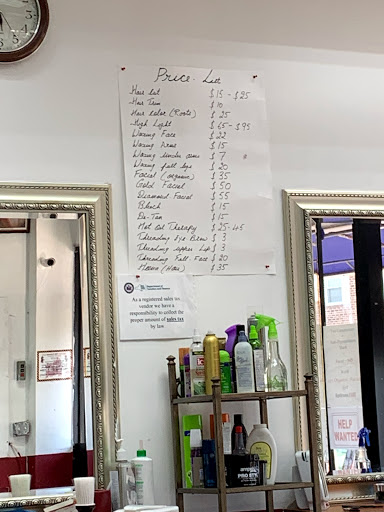 Price List
Hair Cut $15 - $25
Hair Trim $10
Hair Color (Roots) $25
High Light $65 - $95
Waxing Face $22
Waxing Arms $15
Waxing Under arms $7
Waxing full legs $20
Facial (organic) $35
Gold Facial $50
Diamond Facial $55
Bleach $15
De-Tan $15
Hot oil Therapy $25-45
Threading Eye Brow $3
Threading upper Lip $3
Threading Full Face $20
$35
As a registered sales tax
vendor we have a
responsibility to collect the
proper amount of sales tax
by law.
HELP
WANTED
PRO STY